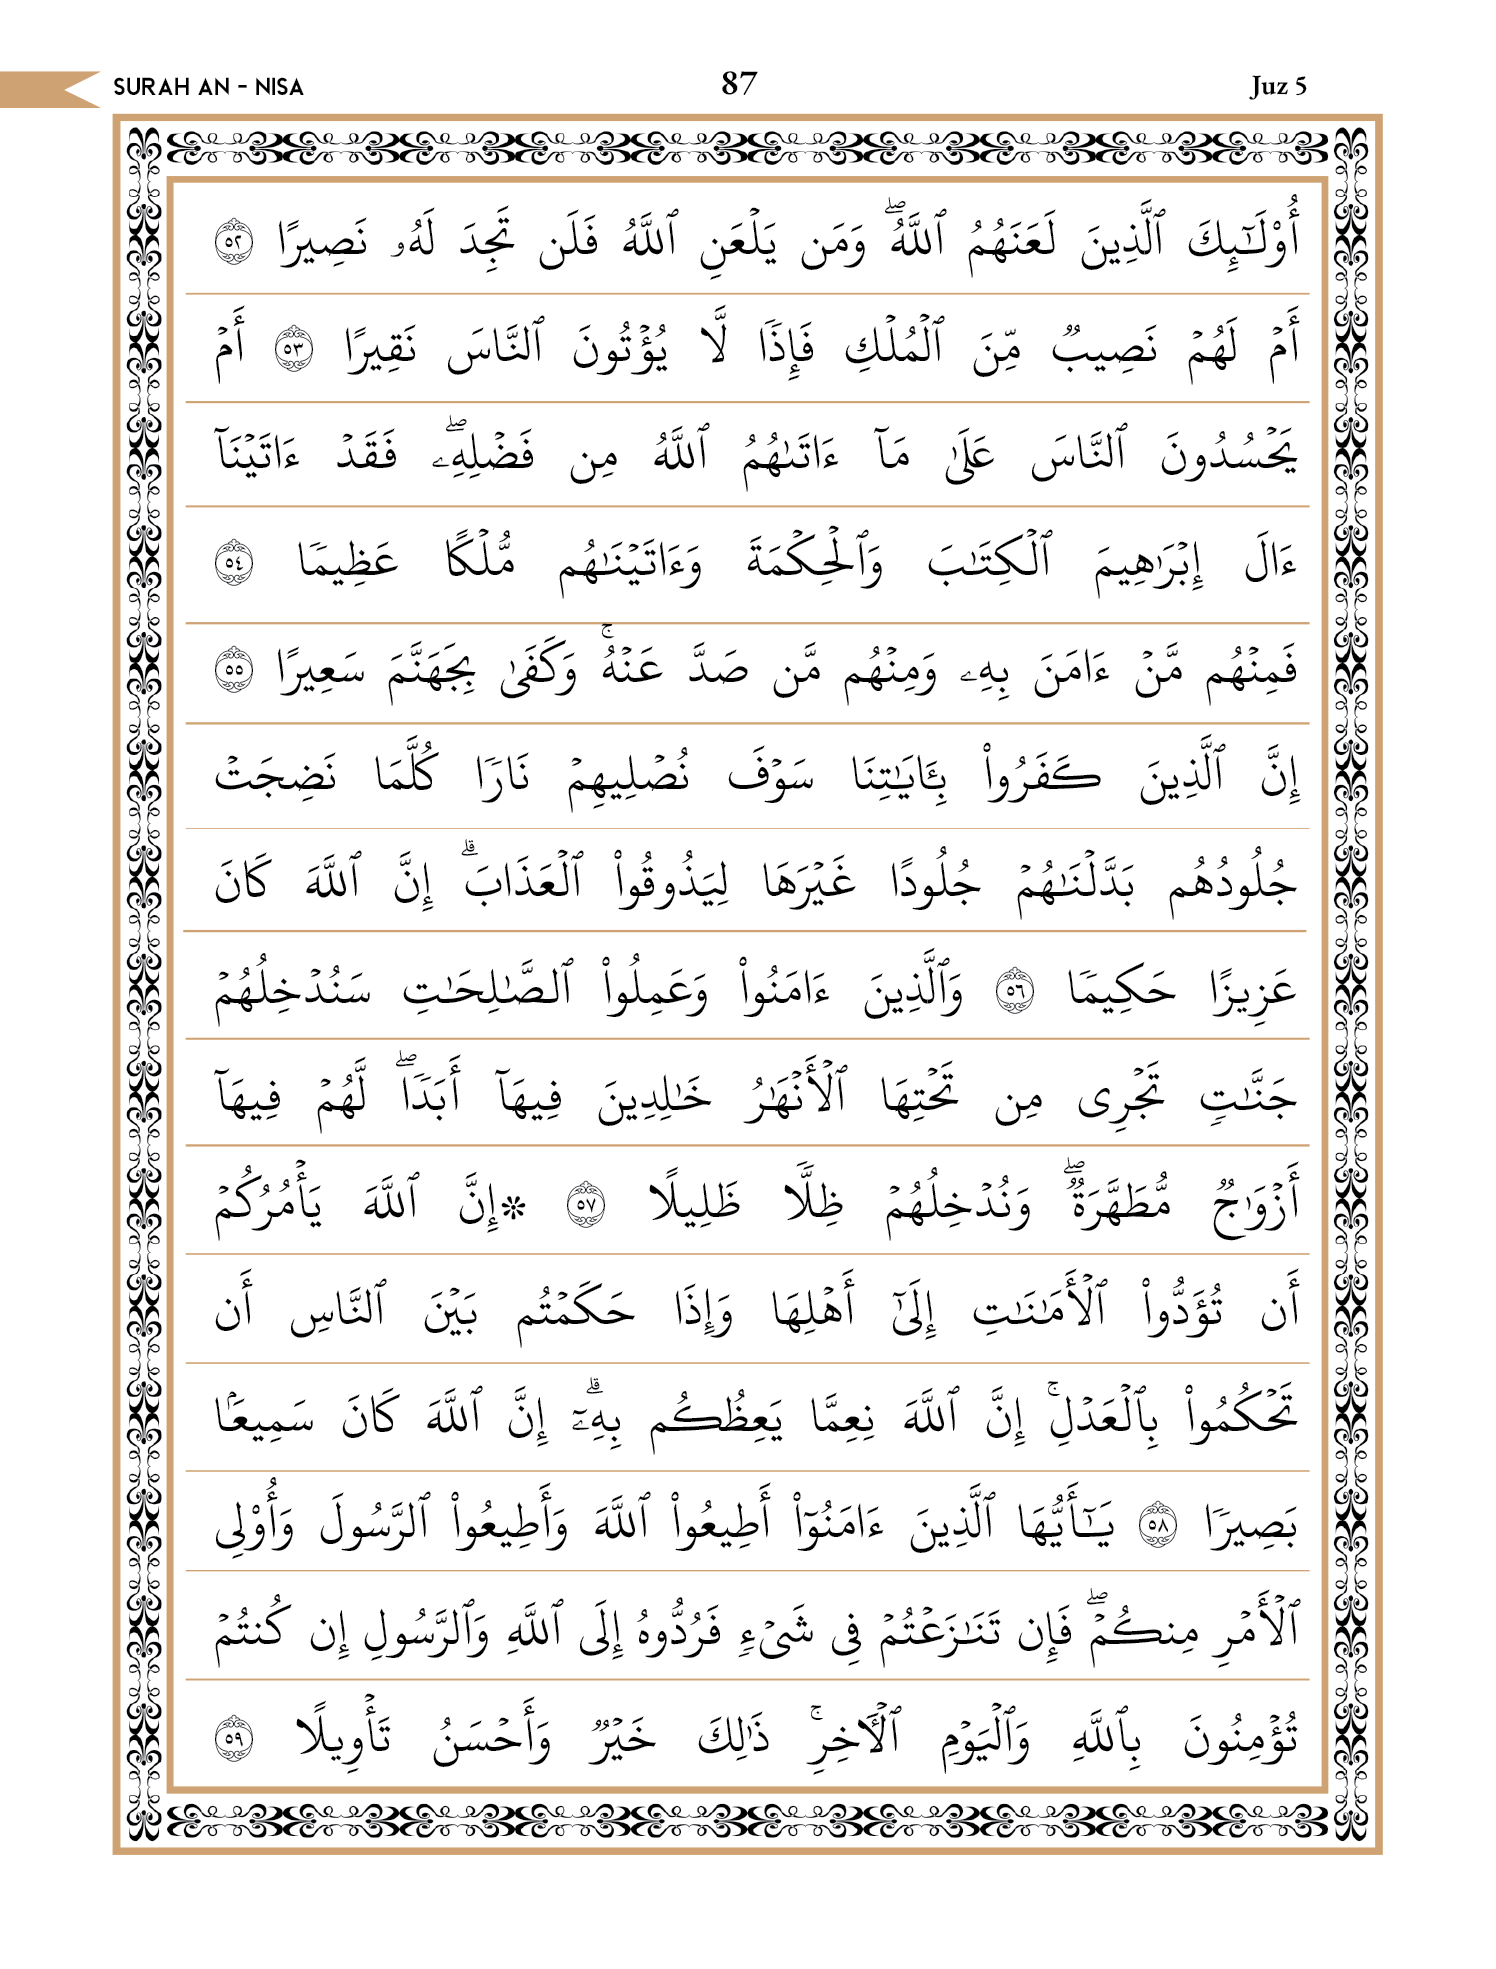 SURAH AN - NISA 87 Juz 5
أُوْلَـٰٓئِكَ ٱلَّذِينَ لَعَنَهُمُ ٱللَّهُۖ وَمَن يَلۡعَنِ ٱللَّهُ فَلَن تَجِدَ لَهُۥ نَصِيرًا ٥٢
أَمۡ لَهُمۡ نَصِيبٞ مِّنَ ٱلۡمُلۡكِ فَإِذٗا لَّا يُؤۡتُونَ ٱلنَّاسَ نَقِيرًا ٥٣ أَمۡ
يَحۡسُدُونَ ٱلنَّاسَ عَلَىٰ مَآ ءَاتَىٰهُمُ ٱللَّهُ مِن فَضۡلِهِۦۖ فَقَدۡ ءَاتَيۡنَآ
ءَالَ إِبۡرَٰهِيمَ ٱلۡكِتَٰبَ وَٱلۡحِكۡمَةَ وَءَاتَيۡنَٰهُم مُّلۡكًا عَظِيمٗا ٥٤
فَمِنۡهُم مَّنۡ ءَامَنَ بِهِۦ وَمِنۡهُم مَّن صَدَّ عَنۡهُۚ وَكَفَىٰ بِجَهَنَّمَ سَعِيرًا ٥٥
إِنَّ ٱلَّذِينَ كَفَرُواْ بِـَٔايَٰتِنَا سَوۡفَ نُصۡلِيهِمۡ نَارٗا كُلَّمَا نَضِجَتۡ
جُلُودُهُم بَدَّلۡنَٰهُمۡ جُلُودًا غَيۡرَهَا لِيَذُوقُواْ ٱلۡعَذَابَۗ إِنَّ ٱللَّهَ كَانَ
عَزِيزًا حَكِيمٗا ٥٦ وَٱلَّذِينَ ءَامَنُواْ وَعَمِلُواْ ٱلصَّٰلِحَٰتِ سَنُدۡخِلُهُمۡ
جَنَّٰتٖ تَجۡرِي مِن تَحۡتِهَا ٱلۡأَنۡهَٰرُ خَٰلِدِينَ فِيهَآ أَبَدٗاۖ لَّهُمۡ فِيهَآ
أَزۡوَٰجٞ مُّطَهَّرَةٞۖ وَنُدۡخِلُهُمۡ ظِلّٗا ظَلِيلًا ٥٧ ۞إِنَّ ٱللَّهَ يَأۡمُرُكُمۡ
أَن تُؤَدُّواْ ٱلۡأَمَٰنَٰتِ إِلَىٰٓ أَهۡلِهَا وَإِذَا حَكَمۡتُم بَيۡنَ ٱلنَّاسِ أَن
تَحۡكُمُواْ بِٱلۡعَدۡلِۚ إِنَّ ٱللَّهَ نِعِمَّا يَعِظُكُم بِهِۦٓۗ إِنَّ ٱللَّهَ كَانَ سَمِيعَۢا
بَصِيرٗا ٥٨ يَـٰٓأَيُّهَا ٱلَّذِينَ ءَامَنُوٓاْ أَطِيعُواْ ٱللَّهَ وَأَطِيعُواْ ٱلرَّسُولَ وَأُوْلِي
ٱلۡأَمۡرِ مِنكُمۡۖ فَإِن تَنَٰزَعۡتُمۡ فِي شَيۡءٖ فَرُدُّوهُ إِلَى ٱللَّهِ وَٱلرَّسُولِ إِن كُنتُمۡ
تُؤۡمِنُونَ بِٱللَّهِ وَٱلۡيَوۡمِ ٱلۡأٓخِرِۚ ذَٰلِكَ خَيۡرٞ وَأَحۡسَنُ تَأۡوِيلًا ٥٩